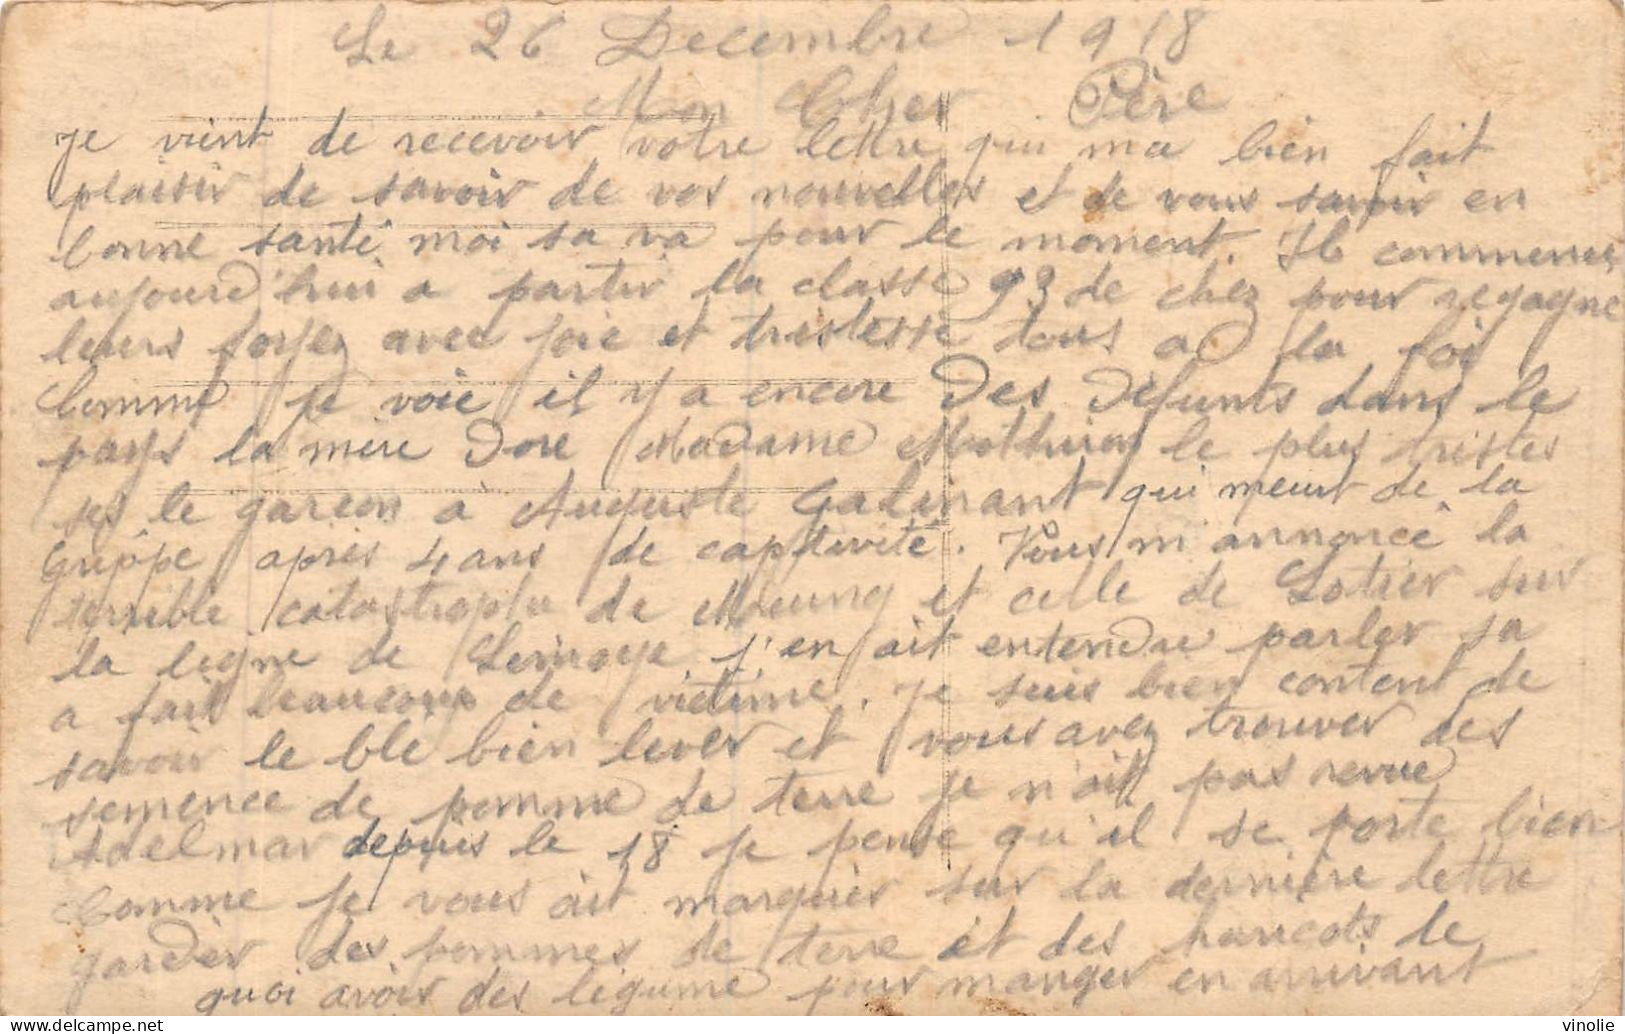 Le 26 Decembre 1918
Mon Cher Père
Je vient de recevoir votre lettre qui ma bien fait
plaisir de savoir de vos nouvelles et de vous savoir en
bonne santé moi sa va pour le moment. Ils commences
aujourd'hui a partir la classe 93 de chez pour regagne
leurs foyez avec joie et tristesse tous a la foi
Comme je voie il y a encore des defunts dans le
pays la mère Dore Madame le plus tristes
ses le garcon à Auguste Galinant qui meurt de la
Grippe après 4 ans de captivité. Vous m'annoncé la
terrible catastrophe de Meung et celle de sur
la ligne de j'en ait entendue parler sa
a fait beaucoup de victime. Je suis bien content de
savoir le blé bien lever et vous avez trouver des
semence de pomme de terre je n'ait pas revue
Adelmar depuis le 18 je pense qu'il se porte bien
Comme je vous ait marquer sur la dernière lettre
garder des pommes de terre et des haricots le
quoi avoir des légume pour manger en arrivant
vinolie